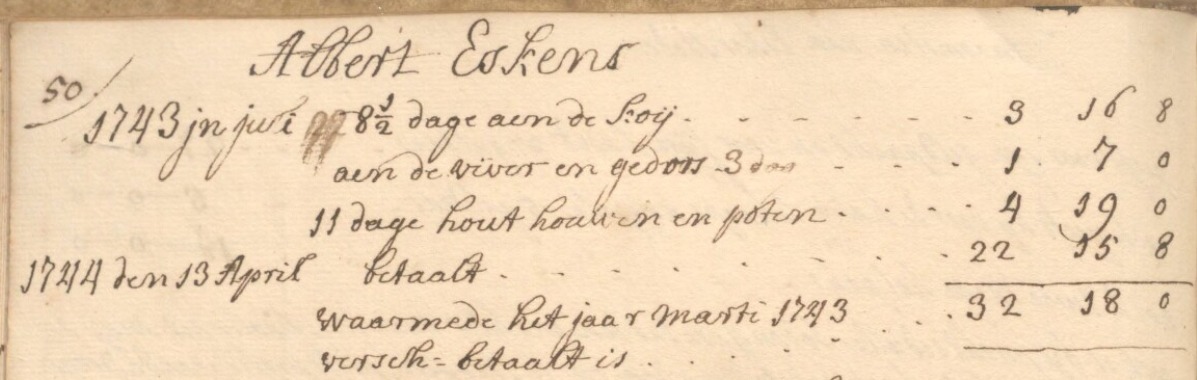 Albert Eskens
50
1743 jn juli 8 1/2 dage aen de hoij - - - - - - 3 16 8
aen de viver en gedors 3 dag - - - 1 7 0
11 dage hout houwen en poten - - - - 4 19 0
1744 den 13 April betaalt - - - - - - - 22 15 8
waarmede het jaar marti 1743 - - - 32 18 0
versch= betaalt is - - - -